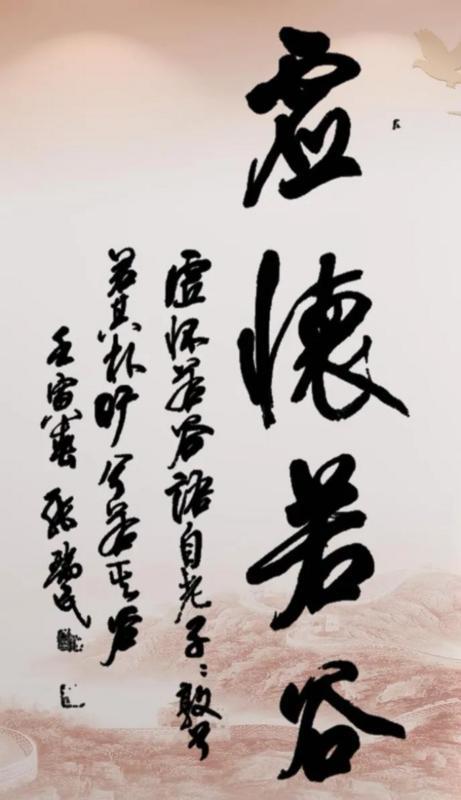 虚懷若谷
虚怀若谷語自老子:敦兮
若其朴旷兮若其谷
壬寅春 张瑞民